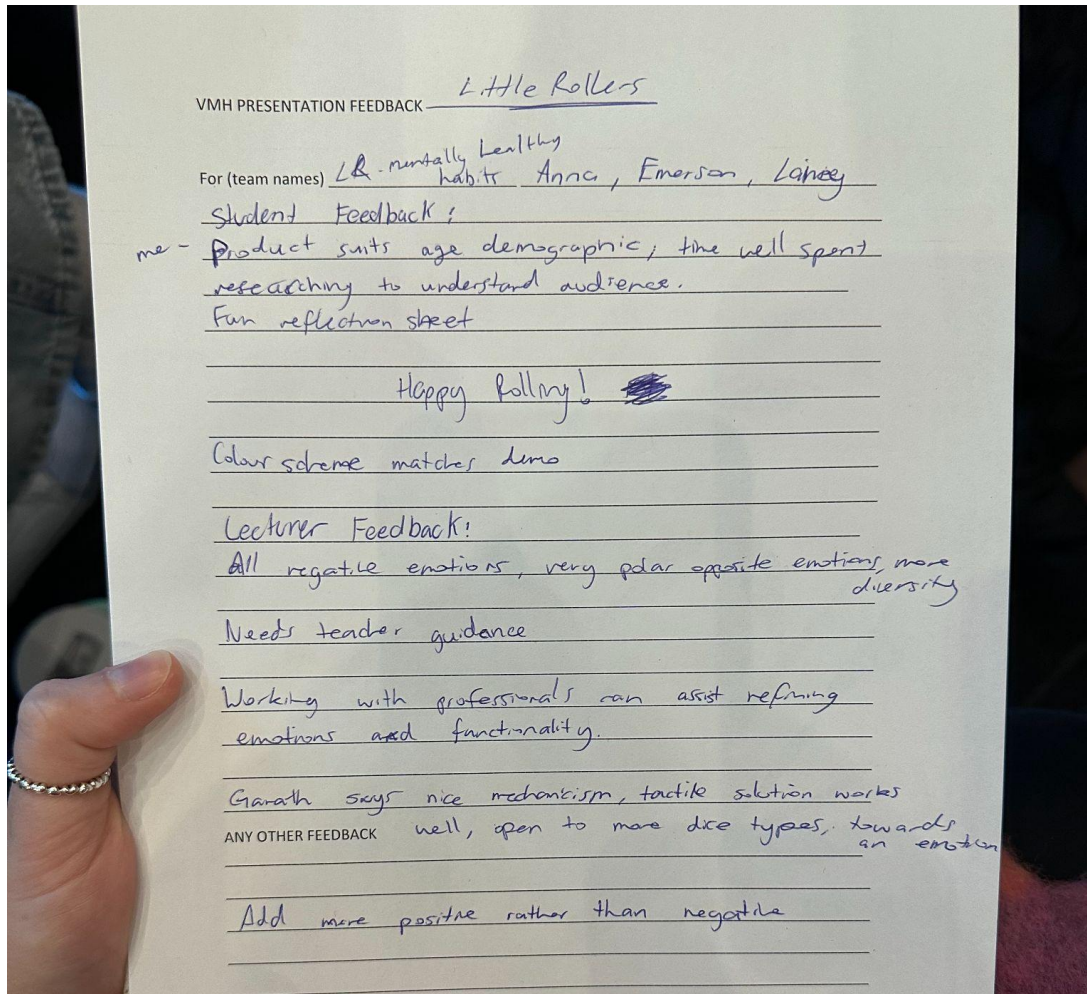 Little Rollers
VMH PRESENTATION FEEDBACK
mentally healthy
For (team names) LR - habits Anna, Emerson, Lainey
Student Feedback:
me - Product suits age demographic; time well spent
researching to understand audience.
Fun reflection sheet
Happy Rolling!
Colour scheme matches demo
Lecturer Feedback:
All negative emotions, very polar opposite emotions, more
diversity
Needs teacher guidance
Working with professionals can assist refining
emotions and functionality.
Garath says nice mechanicism, tactile solution works
ANY OTHER FEEDBACK well, open to more dice types, towards
an emotion
Add more positive rather than negative